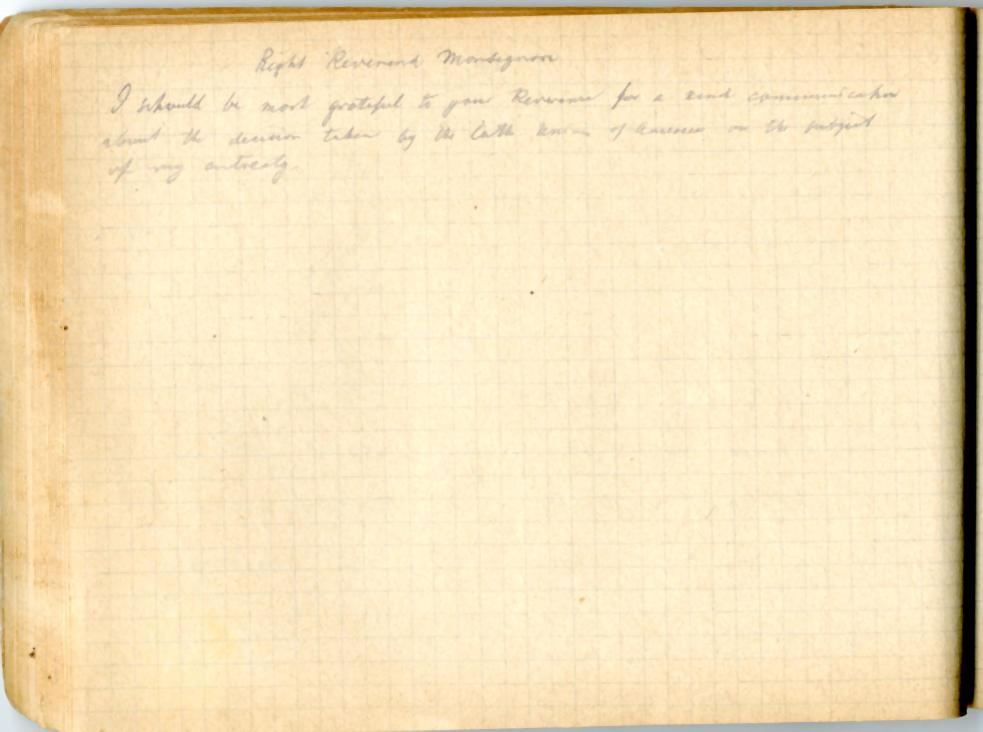 Right Reverend Monsignore
I should be most grateful to your Reverence for a kind communication
about the decision taken by the Cath of America on the subject
of my entreaty.